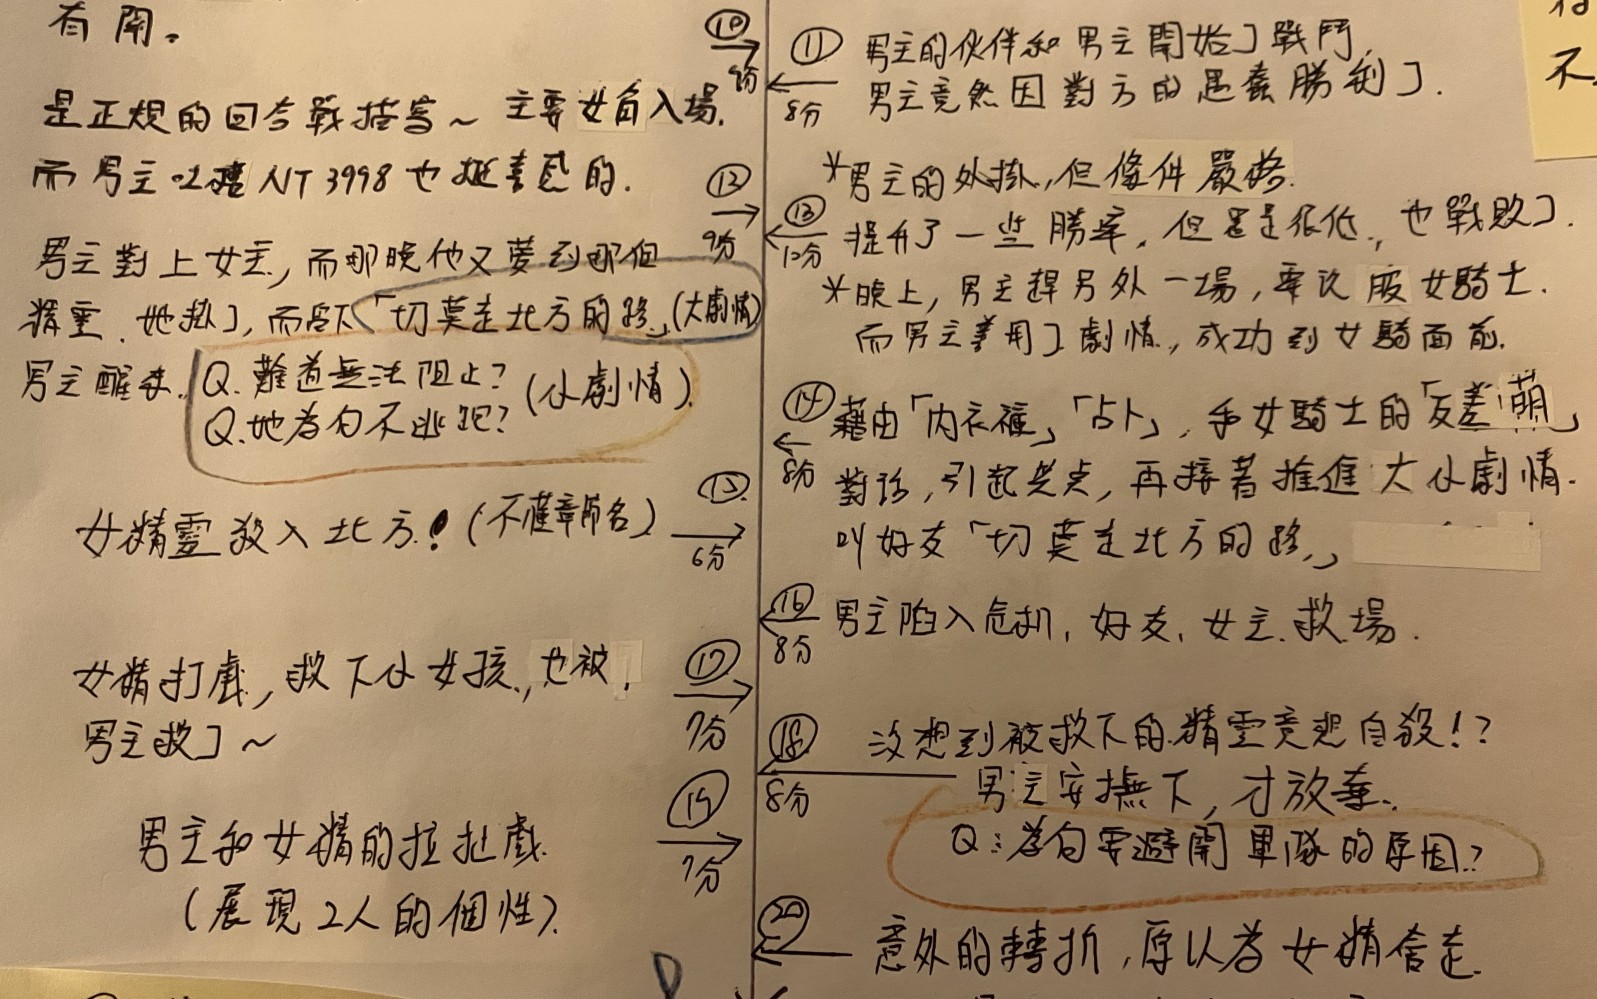 有開。
⑩
8分
是正規的回合戰描寫~ 主要女角入場.
而男主吐嘈NT 3998也挺喜感的.
⑫
9分
男主對上女主, 而那晚他又夢到那個
精靈. 她掛了, 而留下「切莫走北方的路」(大劇情)
男主醒來.
Q. 難道無法阻止?
(小劇情).
Q. 她為何不逃跑?
⑮
女精靈殺入北方! (不懂章節名)
6分
⑰
女精打戲, 救下小女孩, 也被
男主救了~
7分
⑲
男主和女精的拉扯戲.
(展現2人的個性).
7分
⑪ 男主的伙伴和男主開始了戰鬥,
8分
男主竟然因對方的愚蠢勝利了.
*男主的外掛, 但條件嚴格.
⑬
10分
提升了一些勝率, 但還是很低, 也戰敗了.
*晚上, 男主趕另外一場, 要說服女騎士.
而男主善用了劇情, 成功到女騎面前.
⑭
8分
藉由「內衣褲」「占卜」, 和女騎士的「反差萌」
對話, 引起笑点, 再接著推進大小劇情.
叫好友「切莫走北方的路」
⑯
8分
男主陷入危机, 好友、女主救場.
⑱
8分
沒想到被救下的精靈竟想自殺!?
男主安撫下, 才放棄.
Q: 為何要避開軍隊的原因?
⑳
意外的轉折, 原以為女精會走.
不